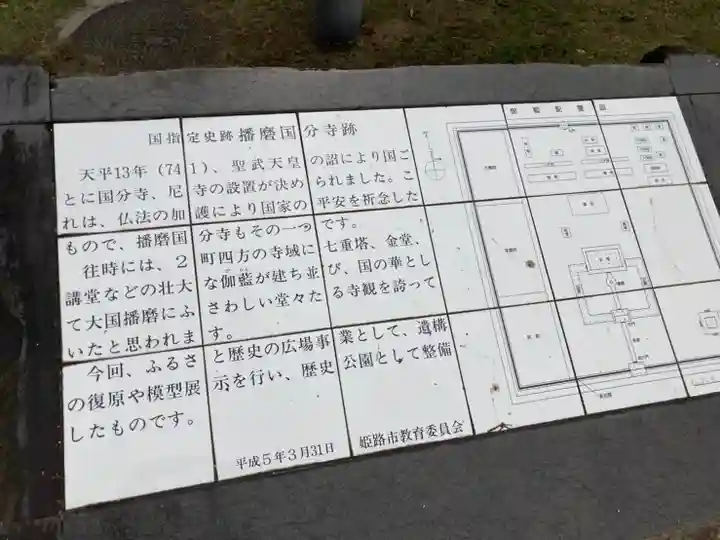 国指定史跡播磨国分寺跡
天平13年(741)、聖武天皇の詔により国ご
とに国分寺、尼寺の設置が決められました。こ
れは、仏法の加護により国家の平安を祈念した
もので、播磨国分寺もその一つです。
往時には、2町四方の寺域に七重塔、金堂、
講堂などの壮大な伽藍が建ち並び、国の華とし
て大国播磨にふさわしい堂々たる寺観を誇って
いたと思われます。
今回、ふるさと歴史の広場事業として、遺構
の復原や模型展示を行い、歴史公園として整備
したものです。
平成5年3月31日
姫路市教育委員会